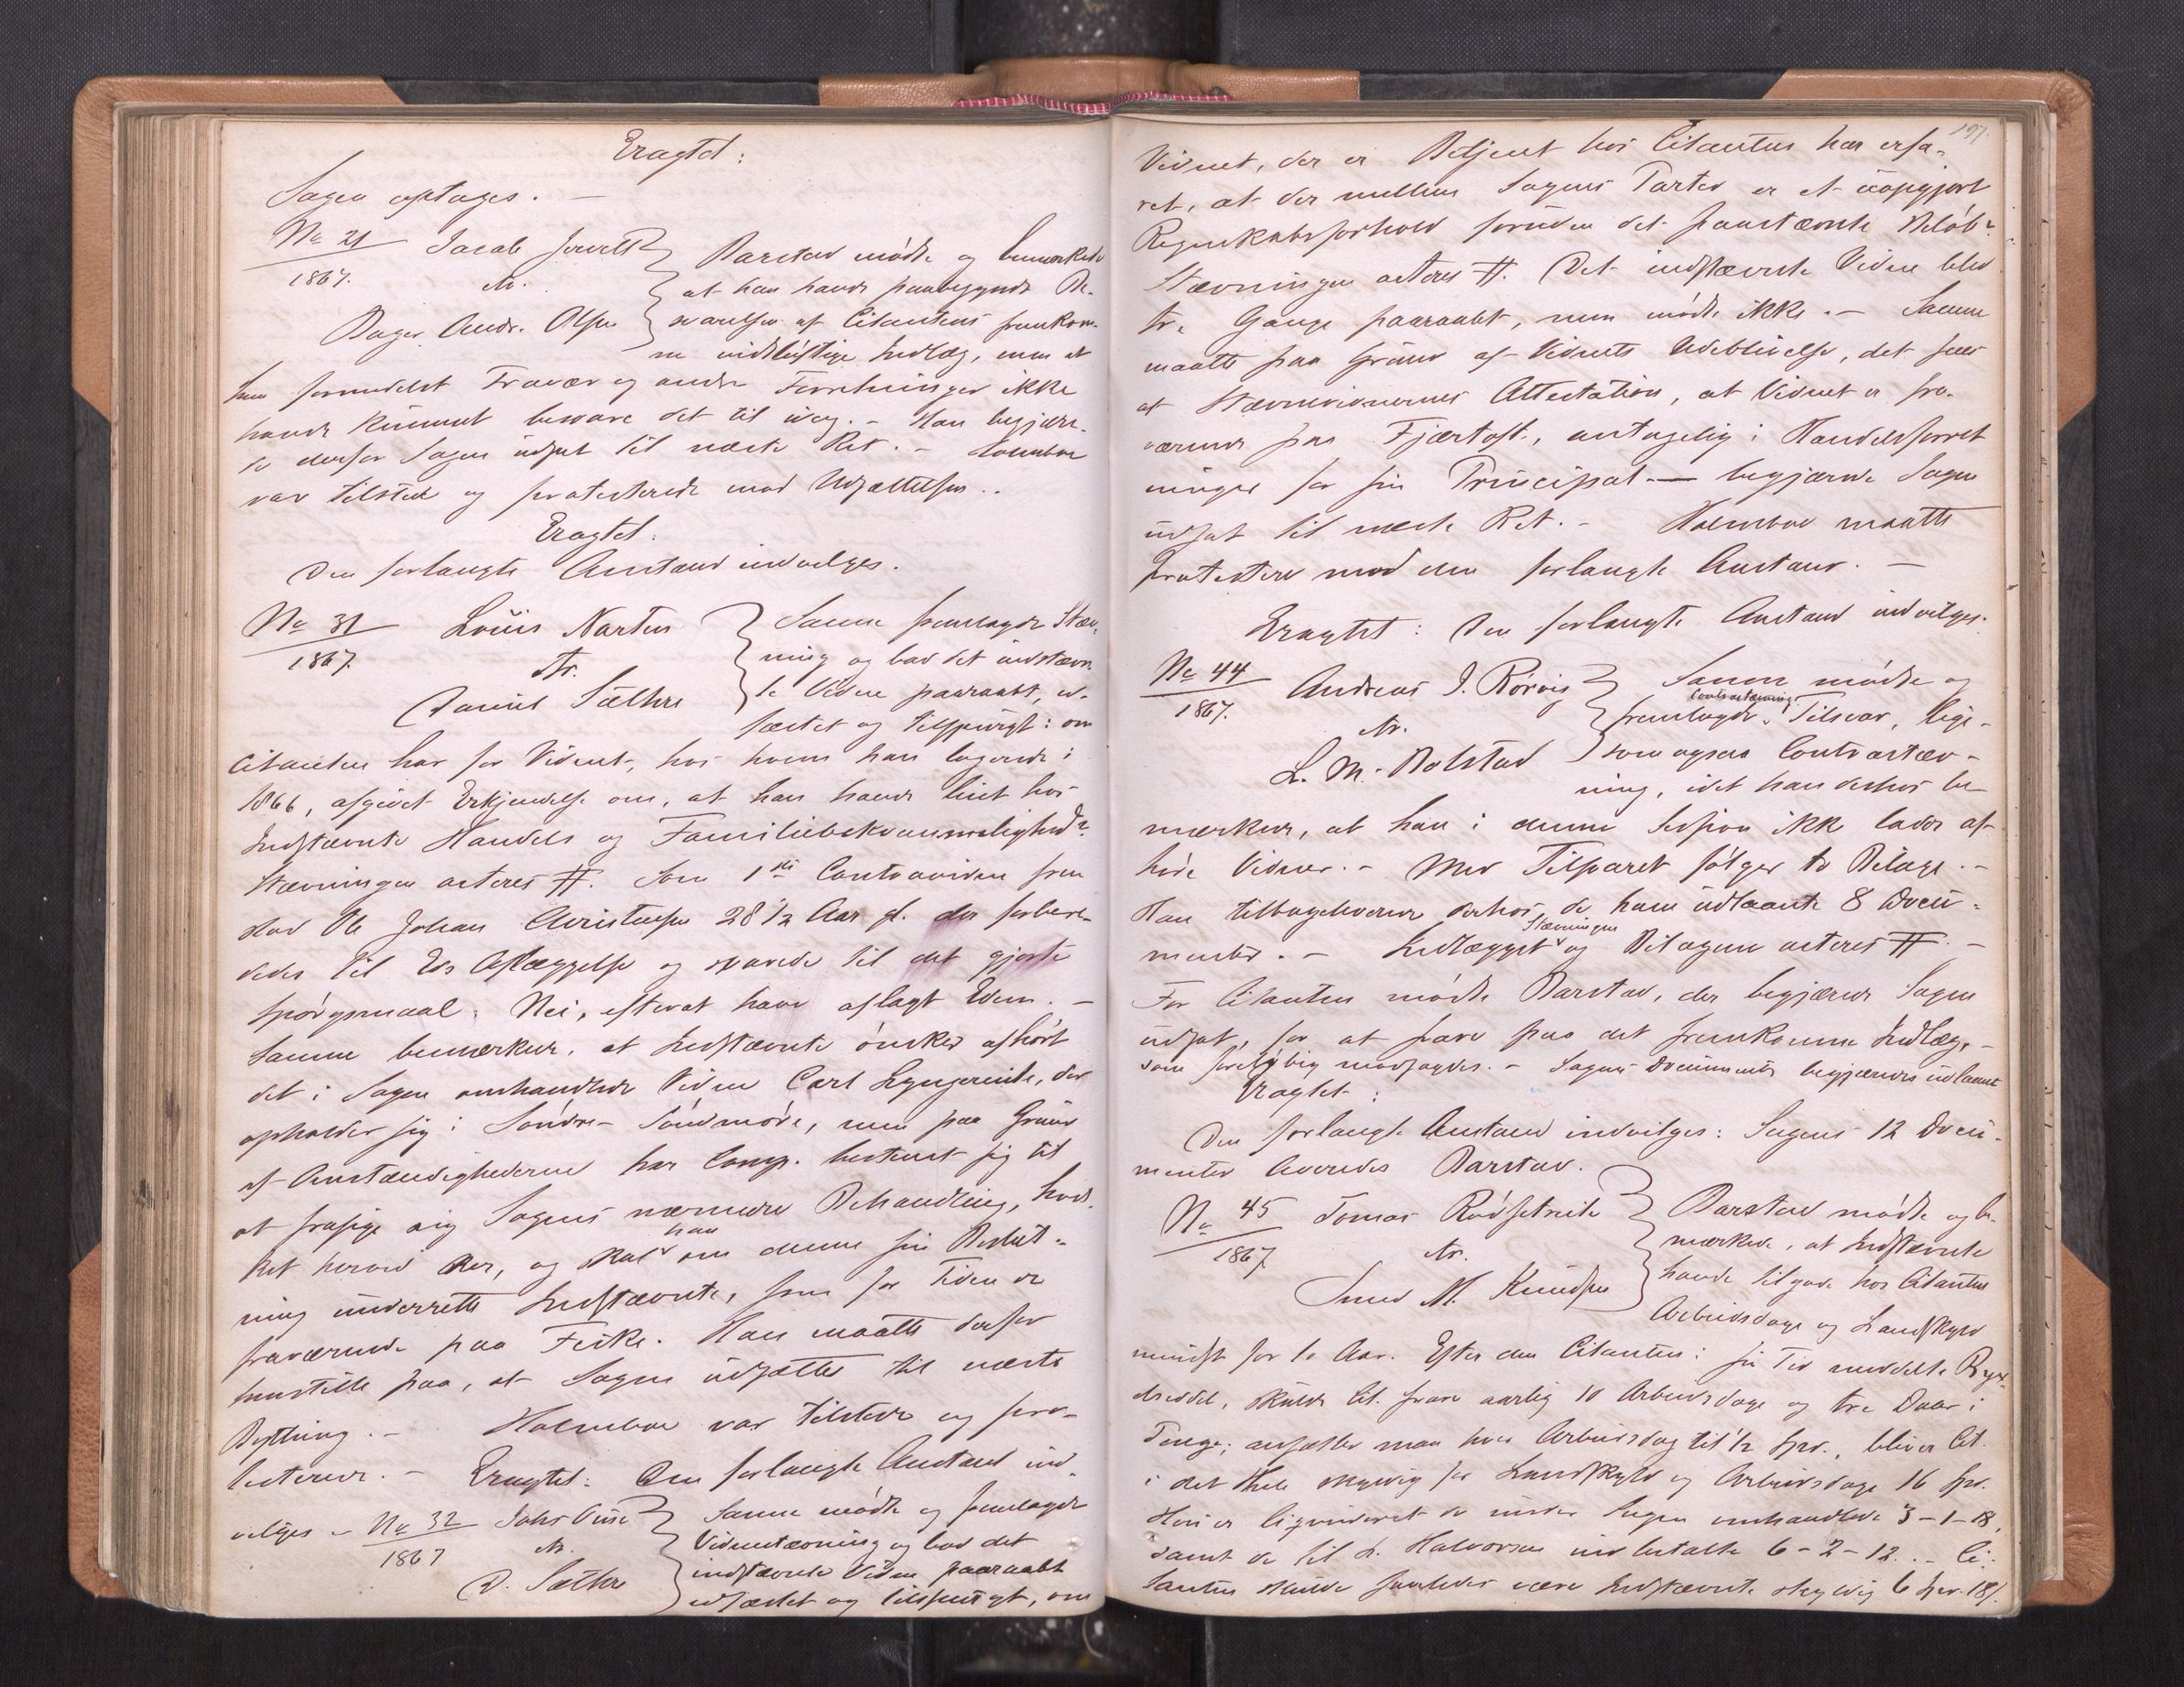 Eragtet:
Sagen optages. —
No 21 Jacob Jervell } Barstad mødte og bemærkede
1867. ctr. } at han havde paabegyndt Be-
Bager Andr. Olsen } svarelsen af Citantens fremkom-
ne vidtløftige Indlæg, men at
han formedelst Fravær og andre Forretninger ikke
havde kunnet besvare det til idag. – Han begjær-
te derfor Sagen udsat til næste Ret. – Holmboe
var tilstede og protesterede mod Udsættelsen..
Eragtet.
Den forlangte Anstand indvilges.
No 31 Louis Narten } Samme fremlagde Stæv-
1867. ctr. } ning og bad det indstævn-
Daniel Sæther } te Vidne paaraabt, ed-
fæstet og tilspurgt: om
Citanten har for Vidnet, hos hvem han logerede i
1866, afgivet Erkjendelse om, at han havde lint hos
Indstævnte Handels og Familiebekvemmeligheder.
Stævningen acteres #. Som 1ste Contravidne frem
stod Ole Johan Christensen 28 1/2 Aar gl. der forbere-
dedes til Eds Aflæggelse og svarede til det gjorte
Spørgsmaal: Nei, efterat have aflagt Eden. –
Samme bemærker, at Indstævnte ønsker afhørt
det i Sagen omhandlede Vidne Carl Lyngeneite, der
opholder sig i Søndre Søndmøre, men paa Grund
af Omstændighederne har Comp. bestemt sig til
at frasige sig Sagens nærmere Behandling, hvil-
ket herved sker, og skal han om denne sin Beslut-
ning underrette Indstævnte, som for Tiden er
fraværende paa Fiske. Han maatte derfor
henstille paa, at Sagen udsættes til næste
Retthing. – Holmboe var tilstede og pro-
testerer. – Eragtet: Den forlangte Anstand ind-
vilges – No 32 Johs Aure } Samme mødte og fremlagde
1867 ctr. } Vidnestævning og bad det
D. Sæther } indstævnte Vidne paaraabt
edfæstet og tilspurgt, om
197.
Vidnet, der er Betjent hos Citanten har erfa-
ret, at der mellem Sagens Parter er et uopgjort
Regnskabsforhold foruden det paastævnte Beløb.
Stævningen acteres #. Det indstævnte Vidne blev
tre Gange paaraabt, men mødte ikke. – Samme
maatte paa Grund af Vidnets Udeblivelse, det sees
af Stævnevidnernes Attestation, at Vidnet er fra-
værende paa Fjærtoft, antagelig i Handelsforret
ninger for sin Principal — begjærede Sagen
udsat til næste Ret. – Holmboe maatte
protestere mod den forlangte Anstand. —
Eragtet: Den forlangte Anstand indvilges.
No 44 Andreas I. Rørvig } Samme mødte og
1867. ctr. } fremlagde Contrastævning Tilsvar, lige-
L. M. Bolstad } som ogsaa Contrastæv-
ning, idet han derhos be-
mærker, at han i denne Session ikke lader af-
høre Vidner. – Med Tilsvaret følger to Bilage. –
Han tilbageleverer derhos de ham udlaante 8 Docu-
menter. – Indlægget Stævningen og Bilagene acteres # –
For Citanten mødte Barstad, der begjærer Sagen
udsat, for at svare paa det fremkomne Indlæg, –
som foreløbig modsagdes. – Sagens Documenter begjæredes udlaant
Eragtet:
Den forlangte Anstand indvilges: Sagens 12 Docu-
menter leveredes Barstad.
No 45 Tomas Rødsetreite } Barstad mødte og be-
1867 ctr. } mærkede, at Indstævnte
Smed M. Knudsen } havde tilgode hos Citanten
Arbeidsdage og Landskyld
mindst for to Aar. Efter den Citanten i sin Tid meddelte Byg-
delseddel, skulde Cit. svare aarlig 10 Arbeidsdage og tre Daler i
Penge; ansætter man hver Arbeidsdag til 1/2 Spd., bliver Cit.
i det Hele skyldig for Landskyld og Arbeidsdage 16 Spd.
Heri er liqvideret de under Sagen omhandlede 3-1-18,
samt de til L. Halvorsen indbetalte 6-2-12. – Ci-
tanten skulde saaledes være Indstævnte skyldig 6 Spd. 18 s.